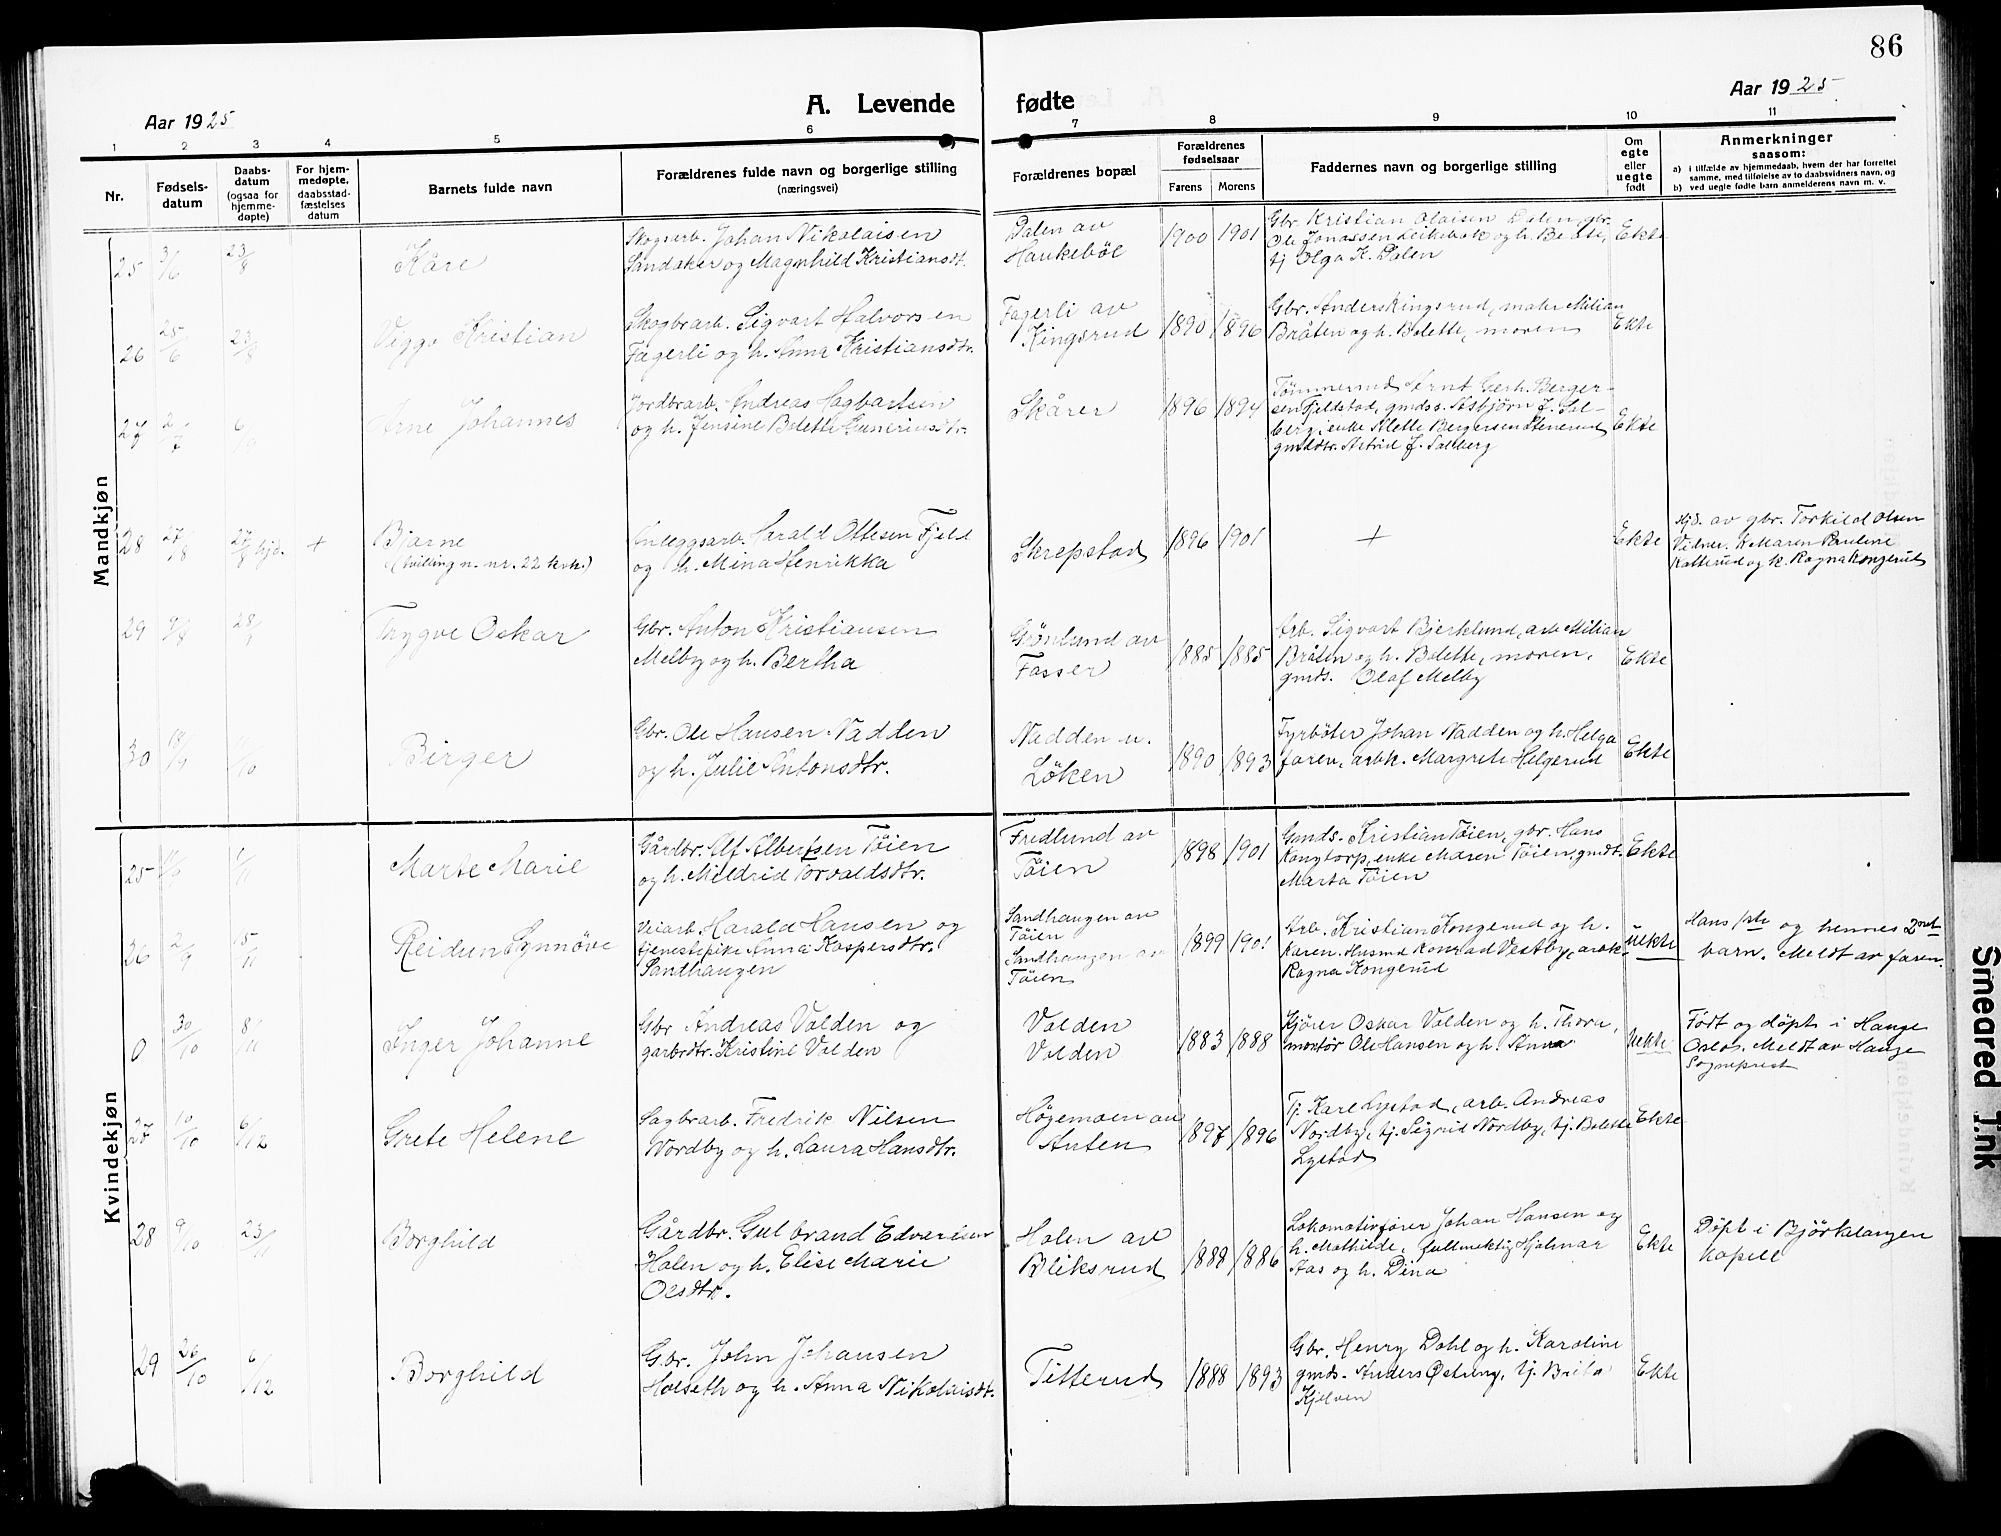 86
Aar 1925
A. Levende fødte
Aar 1925
1 2 3 4 5 6 7 8 9 10 11
Nr.
Fødsels-
datum
Daabs-
datum
(ogsaa for
hjemme-
døpte)
For hjem-
medøpte,
daabsstad-
fæstelses
datum
Barnets fulde navn
Forældrenes fulde navn og borgerlige stilling
(næringsvei)
Forældrenes bopæl
Forældrenes
fødselsaar
Farens
Morens
Faddernes navn og borgerlige stilling
Om
egte
eller
uegte
født
Anmerkninger
saasom:
a) i tilfælde av hjemmedaab, hvem der har forrettet
samme, med tilføielse av to daabsvidners navn, og
b) ved uegte fødte barn anmelderens navn m. v.
Mandkjøn
25 3/6 23/8 Kåre
Skogsarb. Johan Nikolaisen
Sandaker og Magnhild Kristiansdt.
Dalen av
Haukebøl
1900 1901
Gbr. Kristian Olaisen Dalen, gbr.
Ole Jonassen
tj Olga K. Dalen
Ekte
26 25/6 23/8 Viggo Kristian
Skogbrarb. Sigvart Halvorsen
Fagerli og h. Anna Kristiansdtr.
Fagerli av
Kingsrud
1890 1896
Gbr. Anders Kingsrud, Milian
Bråten og h. Bolette, moren
Ekte
27 Arne Johannes
Jordbrarb. Andreas Hagbartsen
og h. Jensine Bolette Guneriusdtr.
Skårer
1896 1894
Tømmermd Arnt Gerh. Berger-
sen Fjeldstad, gmds. Asbjörn J. Sal-
berg, enke Klette Bergersen Stenerud
gmddtr. Astrid J. Salberg
Ekte
28 27/8 27/8 hjd. +
Bjarne
(tvilling m. nr. 22 kvk.)
Anleggsarb. Harald Ottesen Fjeld
og h. Mina Henrikka
Skrepstad
1896 1901
+
Ekte
Hjd. av gbr. Torkild Olsen
Vidner: k Maren Pauline
Katterud og k. Ragna Kongerud
29 9/8 Trygve Oskar
Gbr. Anton Kristiansen
Melby og h. Bertha
Grönlund av
Fosser
1885 1885
Arb. Sigvart Bjerklund, arb Milian
Bråten og h. Bolette, moren,
gmds. Olaf Melby
Ekte
30 18/9 11/10 Birger
Gbr. Ole Hansen Nadden
og h. Julie Antonsdtr.
Nadden u.
Løken
1890 1893
Fyrbøter Johan Nadden og h. Helga
faren, arbk. Margrete Helgerud
Ekte
Kvindekjøn
25 1/11 Marte Marie
Gårdbr. Alf Albertsen Tøien
og h. Mildrid Torvaldsdtr.
Fredlund av
Tøien
1898 1901
Gmds. Kristian Tøien, gbr. Hans
Kongtorp, enke Maren Tøien, gmdt.
Marta Tøien
Ekte
26 2/9 15/11 Reidun Synnöve
Veiarb. Harald Hansen og
tjenestepike Anna Kaspersdtr.
Sandhaugen
Sandhaugen av
Tøien
Sandhaugen av
Tøien
1899 1901
Arb. Kristian Kongerud og h.
Karen. Husmd Konrad Vestby, arbk.
Ragna Kongerud
Uekte
Hans 1ste og hennes 2net
barn. Meldt av faren.
0 30/10 8/11 Inger Johanne
Gbr Andreas Volden og
garbrdtr. Kristine Volden
Volden
Volden
1883 1888
Kjører Oskar Volden og h. Thora,
montör Ole Hansen og h. Anna
Uekte
Født og döpt i Hauge
Oslo. Meldt av Hauge
Sogneprest
27 10/10 6/12 Grete Helene
Sagbrarb. Fredrik Nilsen
Nordby og h. Laura Hansdtr.
Høgemoen av
Anten
1897 1896
Tj. Karl Lystad, arb. Andreas
Nordby, tj. Sigrid Nordby, tj. Bolette
Lystad
Ekte
28 9/10 23/11 Borghild
Gårdbr. Gulbrand Edvardsen
Holen og h. Elise Marie
Olsdtr.
Holen av
Bliksrud
1888 1886
Lokomotivfører Johan Hansen og
h. Mathilde, fullmektig Hjalmar
Aas og h. Dina
Ekte
Döpt i Björkelangen
Kapell
29 26/10 6/12 Borghild
Gbr. John Johansen
Holseth og h. Anna Nikolaisdt.
Titterud
1888 1893
Gbr. Henry Dahl og h. Karoline
gmds. Anders Østreng, tj. Brita
Kjelven
Ekte
Smeared Ink